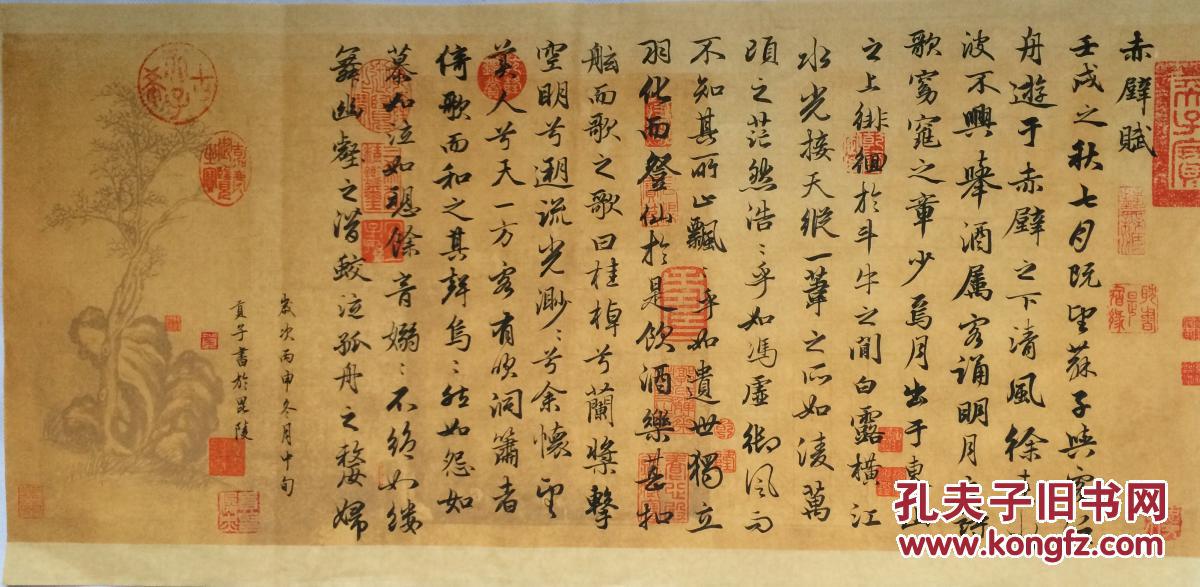 赤壁賦
壬戌之秋七月既望蘇子與客泛
舟遊于赤壁之下清風徐來水
波不興舉酒属客誦明月之詩
歌窈窕之章少焉月出于東山
之上徘徊於斗牛之間白露橫江
水光接天縱一葦之所如凌萬
頃之茫然浩〻乎如馮虛御风而
不知其所止飄〻乎如遺世獨立
羽化而登仙於是飲酒樂甚扣
舷而歌之歌曰桂棹兮蘭槳擊
空明兮遡流光渺〻兮余懷望
美人兮天一方客有吹洞簫者
倚歌而和之其聲烏〻然如怨如
慕如泣如愬餘音嫋〻不絕如縷
舞幽壑之潛蛟泣孤舟之嫠婦
歲次丙申冬月中旬
貢子書於毘陵
孔夫子旧书网
www.kongfz.com